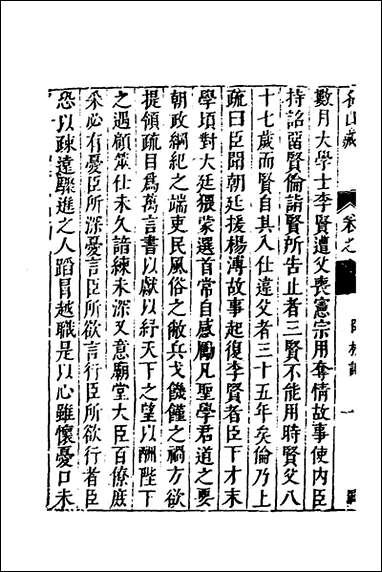 名山藏 卷之 臣林記 一
數月大學士李賢遭父喪憲宗用奪情故事使內臣
持詔留賢倫詣賢所告止者三賢不能用時賢父八
十七歲而賢自其入仕違父者三十五年矣倫乃上
疏曰臣聞朝廷援楊溥故事起復李賢者臣下才末
學頃對大廷猥蒙選首常自感勵凡聖學君道之要
朝政綱紀之端吏民風俗之敝兵戈饑饉之禍方欲
提領疏目為萬言書以獻以紓天下之望以酬陛下
之遇顧筮仕未久諳練未深又意廟堂大臣百僚庶
采必有憂臣所深憂言臣所欲言行臣所欲行者臣
恐以疎遠驟進之人蹈冒越職是以心雖懷憂口未